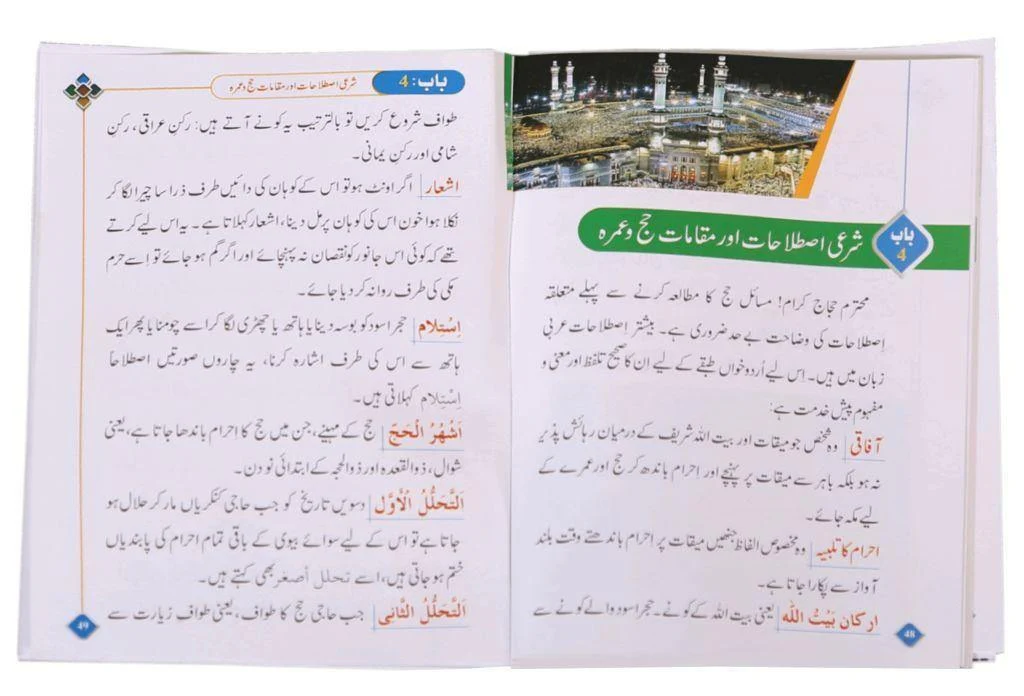 شرعی اصطلاحات اور مقامات حج و عمرہ
باب
4
محترم حجاج کرام! مسائل حج کا مطالعہ کرنے سے پہلے متعلقہ
اِصطلاحات کی وضاحت بے حد ضروری ہے۔ بیشتر اِصطلاحات عربی
زبان میں ہیں۔ اِس لیے اُردو خواں طبقے کے لیے اِن کا صحیح تلفظ اور معنی و
مفہوم پیش خدمت ہے:
آفاقی وہ شخص جو میقات اور بیت اللہ شریف کے درمیان رہائش پذیر
نہ ہو بلکہ باہر سے میقات پر پہنچے اور احرام باندھ کر حج اور عمرے کے
لیے مکہ جائے۔
احرام کا تلبیہ وہ مخصوص الفاظ جنھیں میقات پر اِحرام باندھتے وقت بلند
آواز سے پکارا جاتا ہے۔
ارکان بَیْتُ اللّٰه یعنی بیت اللہ کے کونے۔ حجر اسود والے کونے سے
48
باب: 4 شرعی اصطلاحات اور مقامات حج و عمرہ
طواف شروع کریں تو بالترتیب یہ کونے آتے ہیں: رکنِ عراقی، رکنِ
شامی اور رکن یمانی۔
اشعار اگر اونٹ ہو تو اس کے کوہان کی دائیں طرف ذرا سا چیرا لگا کر
نکلا ہوا خون اس کی کوہان پر مل دینا، اشعار کہلاتا ہے۔ یہ اس لیے کرتے
تھے کہ کوئی اس جانور کو نقصان نہ پہنچائے اور اگر گم ہو جائے تو اِسے حرم
مکی کی طرف روانہ کر دیا جائے۔
اِسْتِلام حجر اسود کو بوسہ دینا یا ہاتھ یا چھڑی لگا کر اسے چومنا یا پھر ایک
ہاتھ سے اس کی طرف اشارہ کرنا، یہ چاروں صورتیں اصطلاحاً
اِسْتِلام کہلاتی ہیں۔
اَشْهُرُ الْحَجّ حج کے مہینے، جن میں حج کا اِحرام باندھا جاتا ہے، یعنی
شوال، ذوالقعدہ اور ذوالحجہ کے ابتدائی نو دن۔
اَلتَّحَلُّلُ الْأَوَّل دسویں تاریخ کو جب حاجی کنکریاں مار کر حلال ہو
جاتا ہے تو اس کے لیے سوائے بیوی کے باقی تمام احرام کی پابندیاں
ختم ہو جاتی ہیں، اسے تحلل أصغر بھی کہتے ہیں۔
اَلتَّحَلُّلُ الثَّانی جب حاجی حج کا طواف، یعنی طواف زیارت سے
49